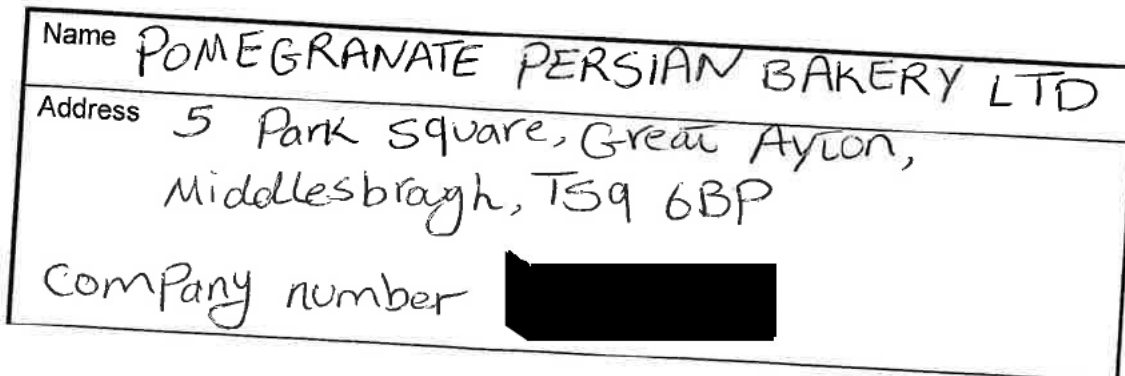 Name POMEGRANATE PERSIAN BAKERY LTD
Address 5 Park Square, Great Ayton,
Middlesbrough, TS9 6BP
Company number